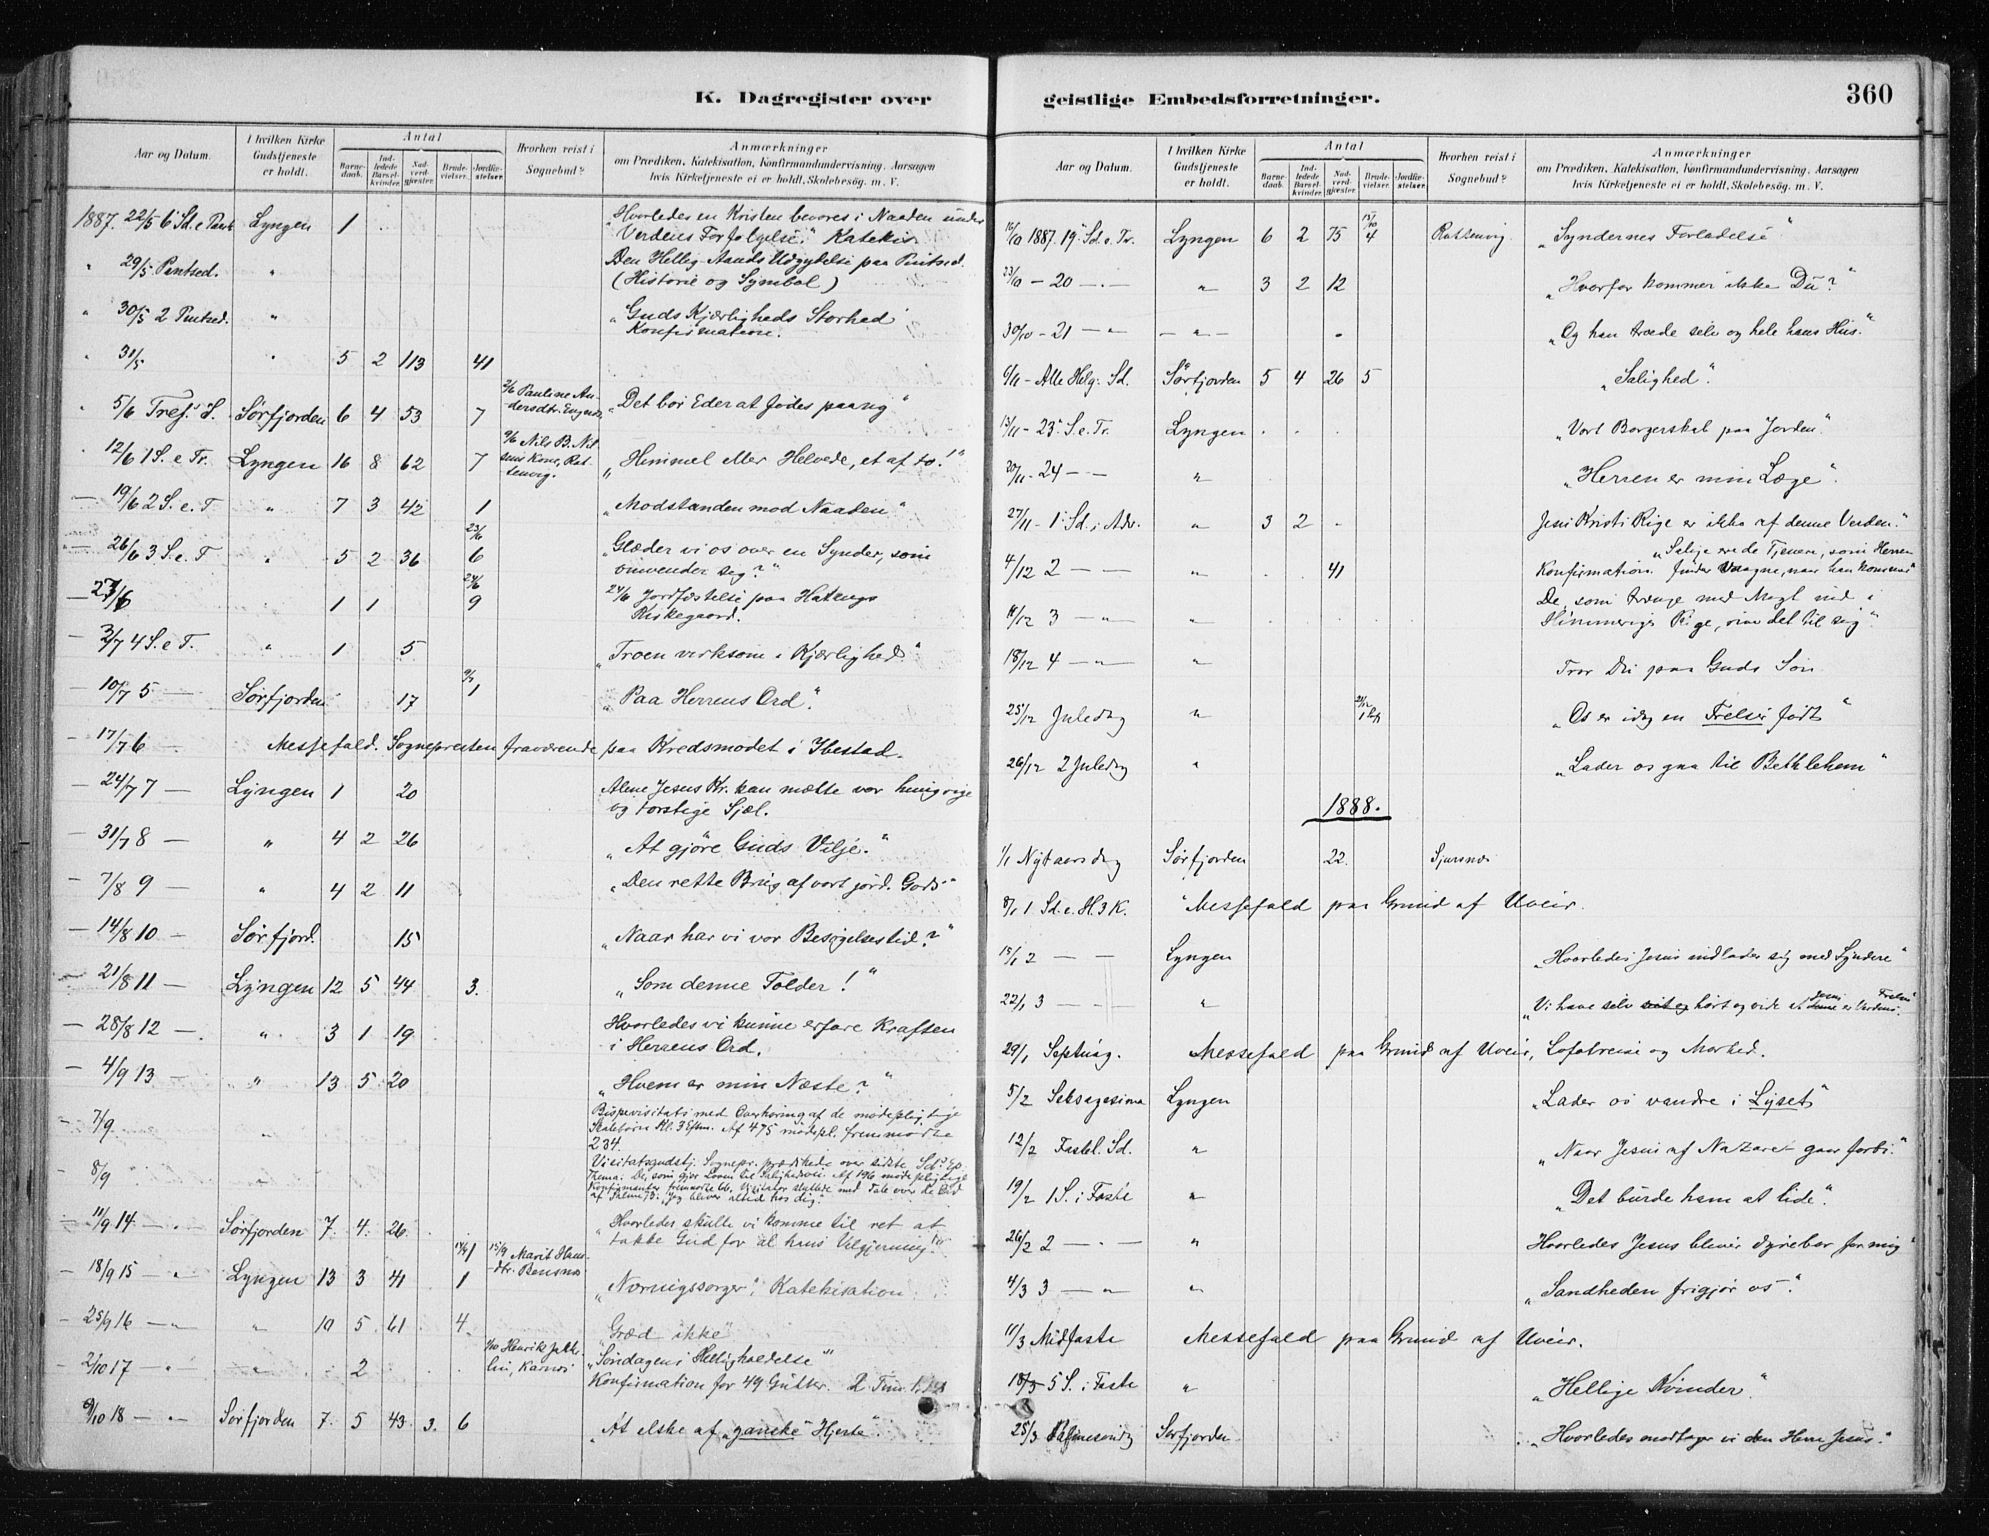 360
K. Dagregister over
geistlige Embedsforretninger.
Aar og Datum.
I hvilken Kirke Gudstjeneste er holdt.
Antal
Barnedaab.
Indledede Barselkvinder.
Nadverdgjæster.
Brudevielser.
Jordfæstelser.
Hvorhen reist i Sognebud?
Anmærkninger
om Prædiken, Katekisation, Konfirmandundervisning, Aarsagen
hvis Kirketjeneste ei er holdt, Skolebesøg. m. V.
1887. 22/5 6 Sd. e Paask Lyngen 1 Hvorledes en Kristen bevares i Naaden under
Verdens Forfølgelse." Katekis.
" 29/5 Pintsed. " Den Hellig-Aands Udgydelse paa Pintsed.
(Historie og Symbol)
" 30/5 2 Pintsed. " "Guds Kjærligheds Storhed
Konfirmation.
" 31/5 " 5 2 113 41
" 5/6 Tref. S. Sørfjorden 6 4 53 7 2/6 Pauline Andersdtr. "Det bør Eder at fødes paany"
" 12/6 1 S. e Tr. Lyngen 16 8 62 7 9/6 Nils B. Nilsens Kone, Rottenvig. "Himmel eller Helvede, et af to!"
— 19/6 2 S. e. T " 7 3 42 1 "Modstanden mod Naaden"
— 26/6 3 S. e T " 5 2 36 23/6 6 "Glæder vi os over en Synder, som
omvender sig?"
— 27/6 1 1 24/6 9 24/6 Jordfæstelse paa Hatengs
Kirkegaard.
— 3/7 4 S. e T. " 1 5 "Troen virksom i Kjærlighed."
— 10/7 5 — Sørfjorden 17 9/7 1 "Paa Herrens Ord."
— 17/7 6 — Messefald. Sognepresten fraværende paa Kredsmødet i Ibestad.
— 24/7 7 — Lyngen 1 20 Alene Jesus Kr. kan mætte vor hungrige
og tørstige Sjæl.
— 31/7 8 — " 4 2 26 "At gjøre Guds Vilje."
— 7/8 9 — " 4 2 11 "Den rette Brug af vort jord. Gods"
— 14/8 10 — Sørfjord. 15 "Naar har vi vor Besøgelsestid?"
— 21/8 11 — Lyngen 12 5 44 3. "Som denne Tolder!"
— 28/8 12 — " 3 1 19 Hvorledes vi kunne erfare Kraften
i Herrens Ord.
— 4/9 13 — " 13 5 20 "Hvem er min Næste?"
7/9 " Bispevisitats med Overhøring af de mødepligtige
Skolebørn Kl. 3 Eftm. Af 475 mødepl. fremmødte
234.
8/9 " Visitatsgudstj. Sognepr. prædikede over sidste Sds Ep.
Konfirmanter fremmødte 66. Visitator sluttede med Tale over de Ord
— 11/9 14 — " Sørfjorden 7. 4. 26. "Hvorledes skulle vi komme til ret at
takke Gud for al hans Velgjerning?"
— 18/9 15 — " Lyngen 13 3 41 1 15/9 Marit Hansdtr. Bensnes "Næringssorger". Katekisation
— 25/9 16 — " " 10 5 61 4. "Græd ikke"
— 2/10 17 — " " 2 Henrik Karnes "Søndagens Helligholdelse"
Konfirmation for 49 Gutter. 2 Tim.
9/10 18 — " Sørfjorden 7. 5 43 3. 6 "At elske af "ganske" Hjerte".
Aar og Datum.
I hvilken Kirke Gudstjeneste er holdt.
Antal
Barnedaab.
Indledede Barselkvinder.
Nadverdgjæster.
Brudevielser.
Jordfæstelser.
Hvorhen reist i Sognebud?
Anmærkninger
om Prædiken, Katekisation, Konfirmandundervisning, Aarsagen
hvis Kirketjeneste ei er holdt, Skolebesøg. m. V.
16/10 1887. 19. Sd. e. Tr. Lyngen 6 2 75 15/10 4 Rottenvig "Syndernes Forladelse"
23/10 — 20 — " — " 3 2 12 "Hvorfor kommer ikke Du?"
30/10 — 21 — " — " — "Og han troede selv og hele hans Hus."
6/11 — Alle Helg. Sd. Sørfjorden 5 4 26 5 "Salighed".
13/11 — 23. S. e. Tr. Lyngen "Vort Borgerskab paa Jorden."
20/11 — 24 — — " "Herren er min Læge".
27/11 — 1 Sd. i Adv. " 3 2 Jesu Kristi Rige er ikke af denne Verden."
"Salige ere de Tjenere, som Herren
4/12 2 — — " 41 Konfirmation. finder vaagne, naar han kommer"
11/12 3 — " — " De, som trænge med Magt ind i
Himmeriges Rige, rive det til sig"
18/12 4 — " — " Tror Du paa Guds Søn
25/12 Juledag " 1 "Os er idag en Frelser født"
26/12 2 Juledag " "Lader os gaa til Bethlehem"
1888.
1/1 Nytaarsdag Sørfjorden 22. Sjursnes
8/1 1 Sd. e. H. 3 K. Messefald paa Grund af Uveir.
15/1 2 — — Lyngen "Hvorledes Jesus indlader sig med Syndere"
22/1 3 — — " "Vi have selv hørt og vide at Jesus er Verdens Frelser."
29/1 Septuag. Messefald paa Grund af Uveir, Lofotreise og Marked.
5/2 Seksagesima Lyngen "Lader os vandre i Lyset"
12/2 Fastel. Sd. " "Naar Jesus af Nazaret gaar forbi."
19/2 1 S. i Faste " "Det burde ham at lide".
26/2 2 — " — " Hvorledes Jesus bliver dyrebar for mig"
4/3 3 — " " "Sandheden frigjør os".
11/3 Midfaste Messefald paa Grund af Uveir.
18/3 5 S. i Faste " "Hellige Kvinder".
25/3 Palmesøndg Sørfjorden "Hvorledes modtager vi den Herre Jesus."